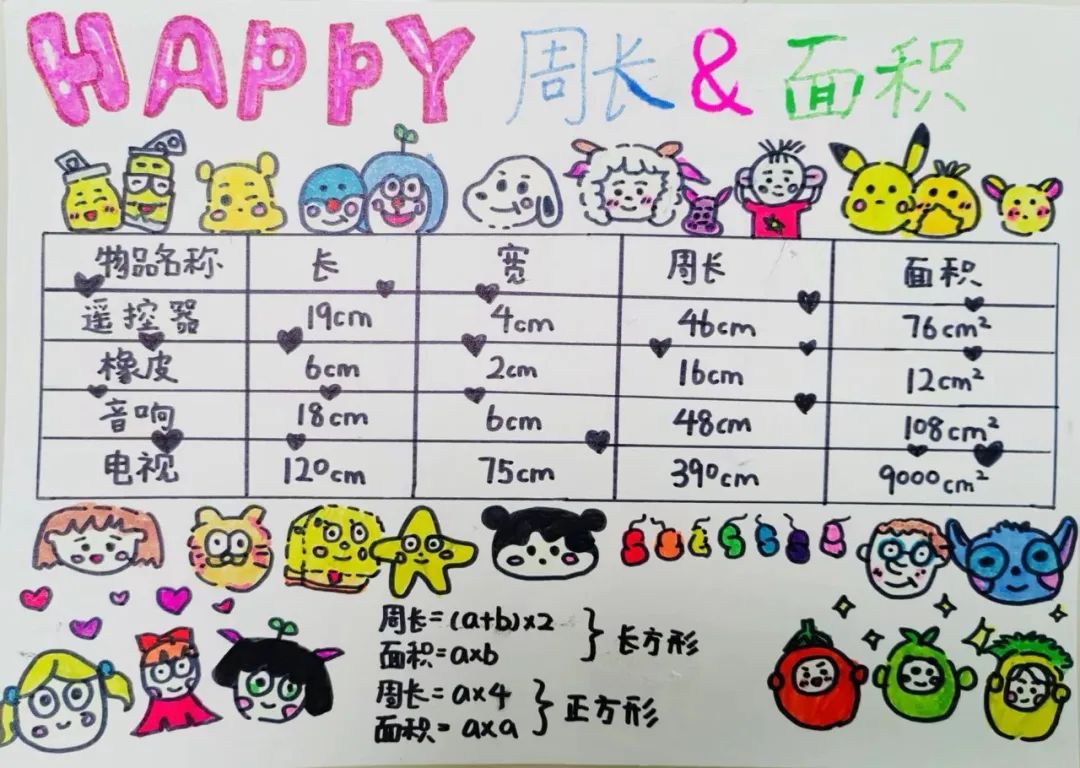 HAPPY 周长 & 面积
物品名称 长 宽 周长 面积
遥控器 19cm 4cm 46cm 76cm²
橡皮 6cm 2cm 16cm 12cm²
音响 18cm 6cm 48cm 108cm²
电视 120cm 75cm 390cm 9000cm²
周长=(a+b)×2
面积=a×b
} 长方形
周长=a×4
面积=a×a
} 正方形